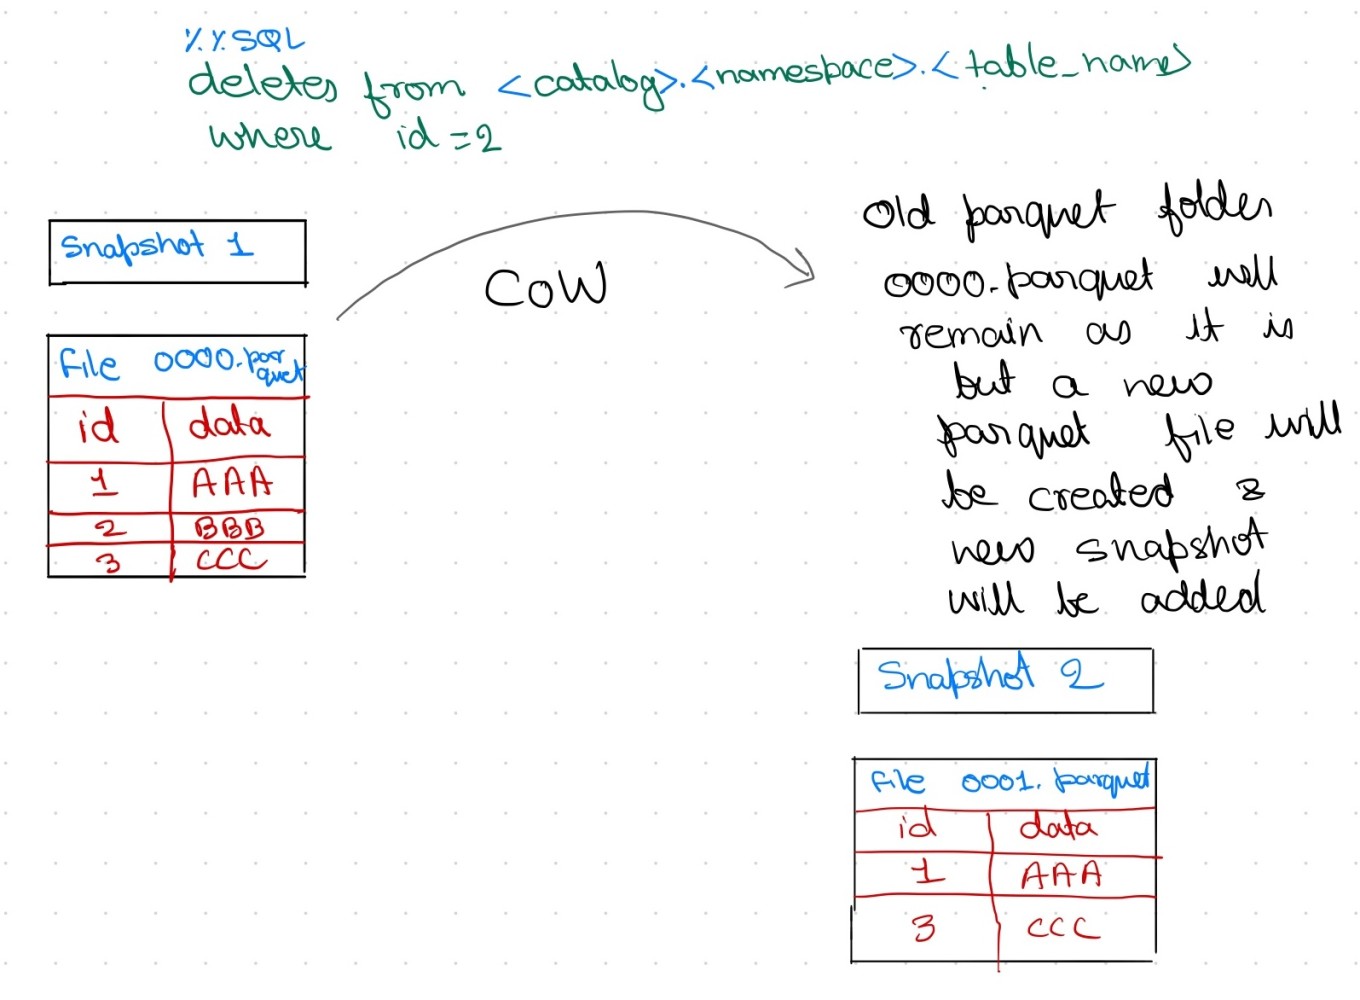 %%SQL
deletes from <catalog>.<namespace>.<table_name>
where id=2
Snapshot 1
File 0000.parquet
id data
1 AAA
2 BBB
3 CCC
CoW
Old parquet folder
0000.parquet will
remain as it is
but a new
parquet file will
be created &
new snapshot
will be added
Snapshot 2
File 0001.parquet
id data
1 AAA
3 CCC